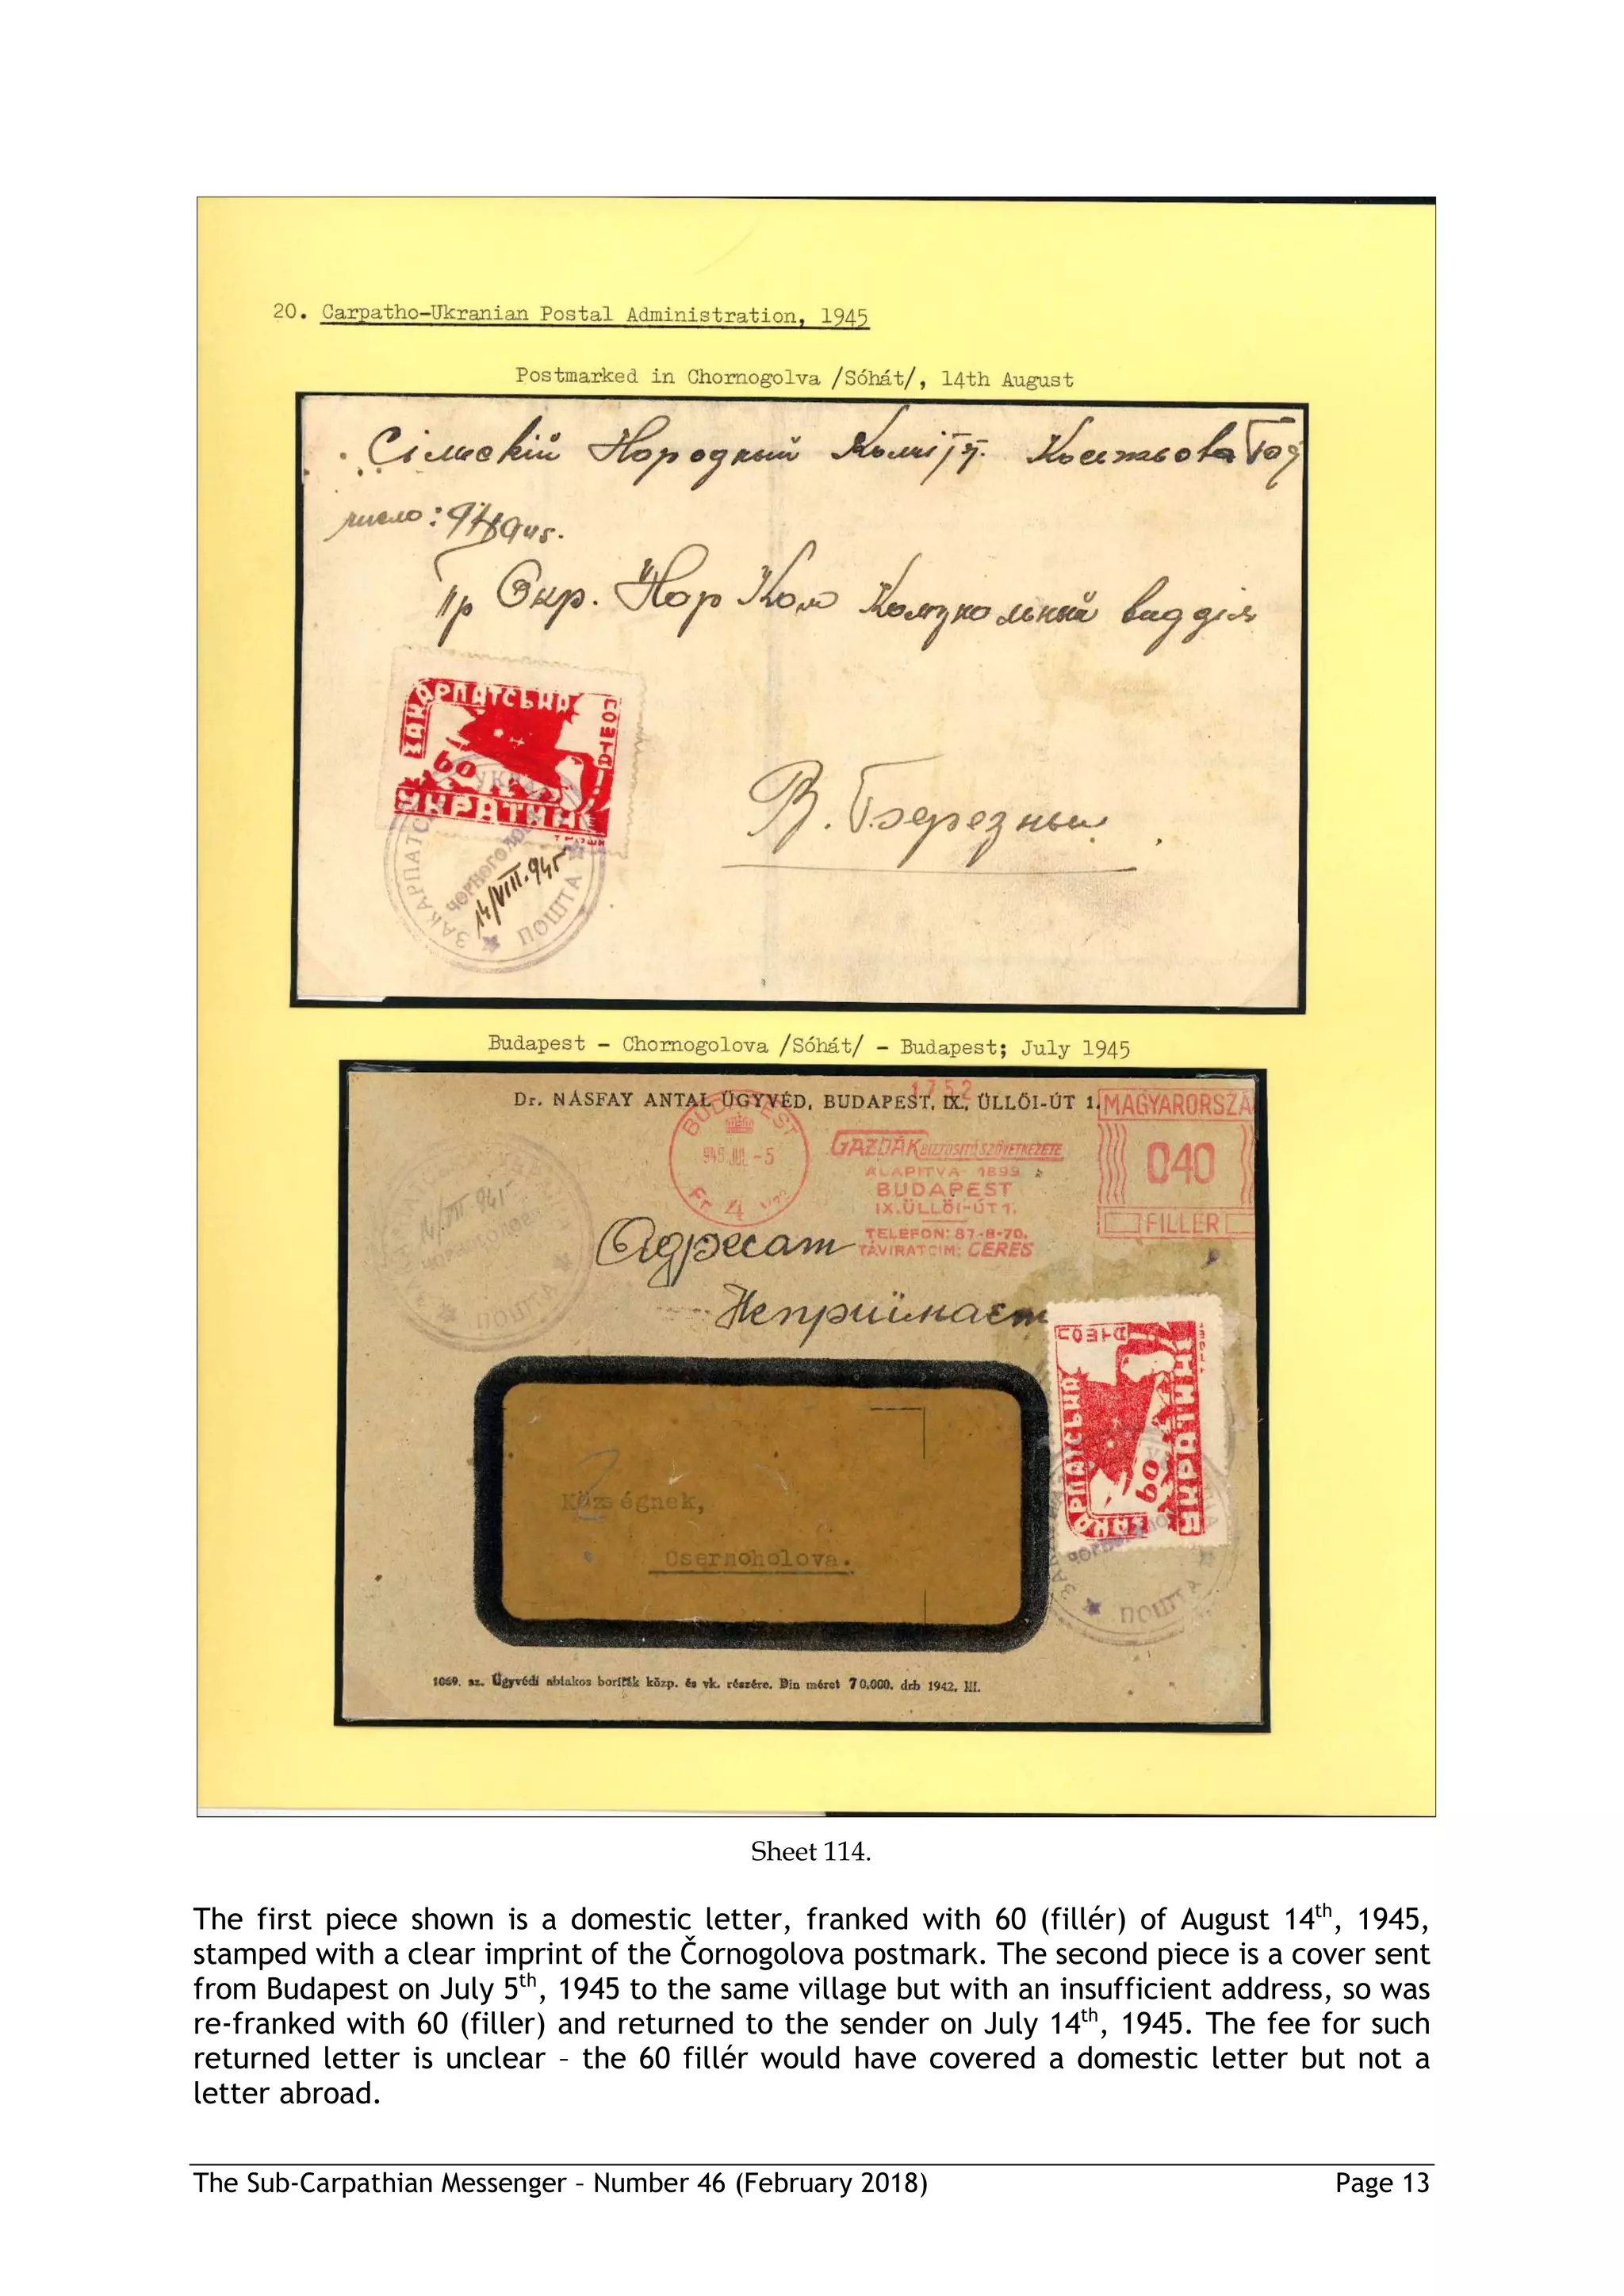 20. Carpatho-Ukranian Postal Administration, 1945
Postmarked in Chornogolva /Sóhát/, 14th August
Сільскій Народный
число:
Окр. Нар Ком
В. Березный
ЗАКАРПАТСЬКА
60
УКРАЇНА
ПОШТА
ЗАКАРПАТС
14/VIII.945
ПОШТА
Budapest - Chornogolova /Sóhát/ - Budapest; July 1945
1752
Dr. NÁSFAY ANTAL ÜGYVÉD, BUDAPEST, IX., ÜLLŐI-ÚT 1.
MAGYARORSZÁ
BUDAPEST
945 JUL -5
4
GAZDÁK BIZTOSITÓ SZÖVETKEZETE
ALAPITVA 1899
BUDAPEST
IX.ÜLLŐI-ÚT 1.
TELEFON: 87-8-70.
TÁVIRATCIM: CERES
040
FILLÉR
Адресат
Неприймает
14/VII 945
ПОШТА
60
Községnek,
Csernoholova.
ПОШТА
1069. sz. Ügyvédi ablakos boríték közp. és vk. részére. Din méret 70.000. drb 1942. III.
Sheet 114.
The first piece shown is a domestic letter, franked with 60 (fillér) of August 14th, 1945,
stamped with a clear imprint of the Čornogolova postmark. The second piece is a cover sent
from Budapest on July 5th, 1945 to the same village but with an insufficient address, so was
re-franked with 60 (filler) and returned to the sender on July 14th, 1945. The fee for such
returned letter is unclear – the 60 fillér would have covered a domestic letter but not a
letter abroad.
The Sub-Carpathian Messenger – Number 46 (February 2018)
Page 13